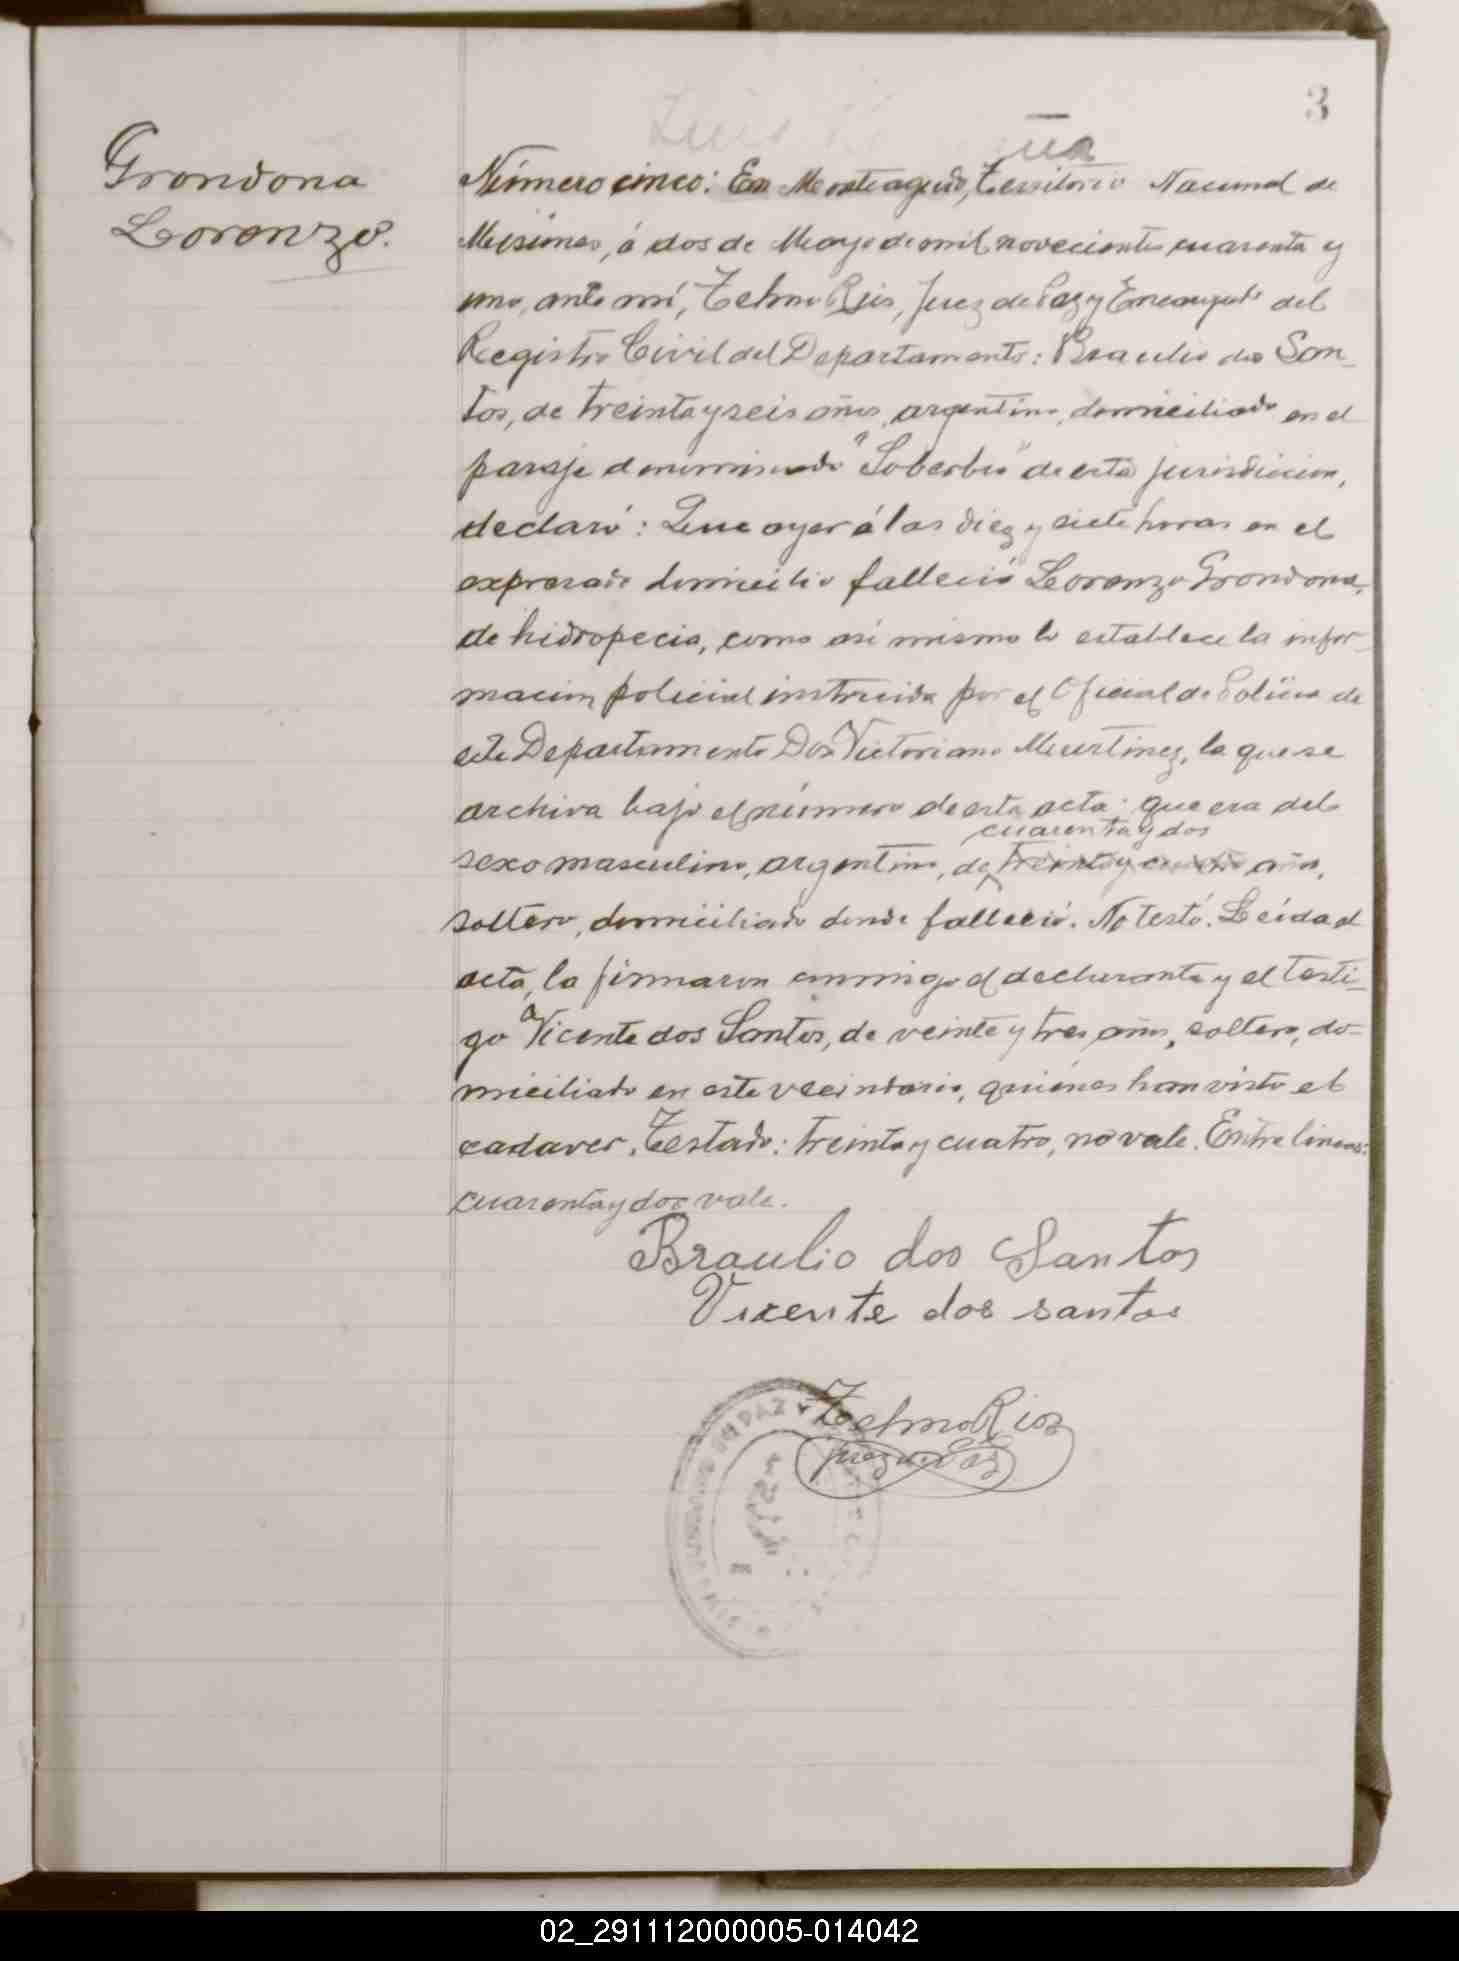 3
Grondona
Lorenzo.
Número cinco: En Monteagudo, Territorio Nacional de
Misiones, á dos de Mayo de mil novecientos cuarenta y
uno, ante mí, Telmo Rios, Juez de Paz y Encargado del
Registro Civil del Departamento: Braulio dos San-
tos, de treinta y seis años, argentino, domiciliado en el
paraje denominado "Soberbio" de esta jurisdiccion,
declaró: Que ayer á las diez y siete horas en el
expresado domicilio falleció Lorenzo Grondona,
de hidropecia, como asi mismo lo establece la infor-
macion policial instruida por el Oficial de Policia de
este Departamento Don Victoriano Martinez, la que se
archiva bajo el número de esta acta: que era del
cuarenta y dos
sexo masculino, argentino, de treinta y cuatro años,
soltero, domiciliado donde falleció. No testó. Leída el
acta, la firmaron conmigo el declarante y el testi-
go Vicente dos Santos, de veinte y tres años, soltero, do-
miciliado en este vecindario, quiénes han visto el
cadaver. Testado: treinta y cuatro, no vale. Entre lineas:
cuarenta y dos vale.
Braulio dos Santos
Vicente dos santos
Telmo Rios
Juez de Paz
DE PAZ
02_291112000005-014042